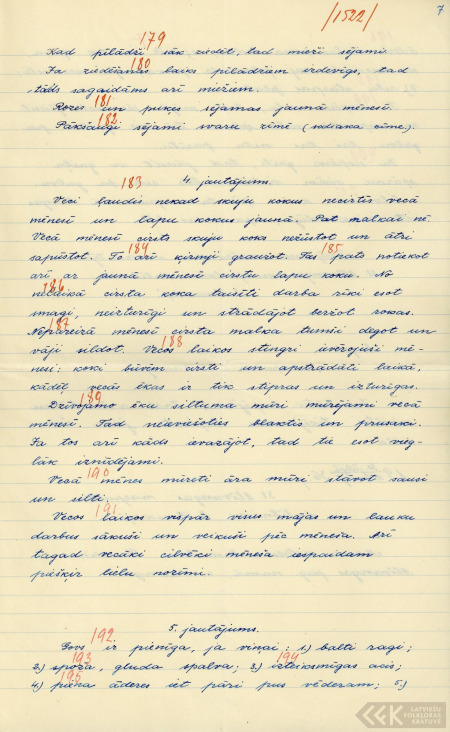 /1522/
7
179
Kad pīlādži sāk ziedēt, tad mieži sējami.
180
Ja ziedēšanas laiks pīlādžiem izdevīgs, tad
tāds sagaidāms arī miežiem.
181
Rozes un puķes sējamas jaunā mēnesī.
182
Pākšaugi sējami svaru zīmē (zodiaka zīme).
183 4. jautājums.
Veci ļaudis nekad skuju kokus necirtīs vecā
mēnesī un lapu kokus jaunā. Pat malkai nē.
Vecā mēnesī cirsts skuju koks nežūstot un ātri
184 185
sapūstot. To arī ķirmji graužot. Tas pats notiekot
arī ar jaunā mēnesī cirstu lapu koku. No
186
nelaikā cirsta koka taisīti darba rīki esot
smagi, neizturīgi un strādājot beržot rokas.
187
Nepareizā mēnesī cirsta malka tumši degot un
188
vāji sildot. Vecos laikos stingri ievērojuši mē-
nesi: koki būvēm cirsti un apstrādāti laikā,
kādēļ vecās ēkas ir tik stipras un izturīgas.
189
Dzīvojamo ēku siltuma mūri mūrējami vecā
mēnesī. Tad neaviešoties blaktis un prusaki.
Ja tos arī kāds ievazājot, tad tie esot vieg-
lāk iznīdējami.
190
Vecā mēnes mūrēti āra mūri stāvot sausi
un silti.
191
Vecos laikos vispār visus mājas un lauku
darbus sākuši un veikuši pēc mēneša. Arī
tagad vecāki cilvēki mēneša iespaidam
piešķir lielu nozīmi.
192 5. jautājums.
Govs ir pienīga, ja viņai: 1) balti ragi;
193 194
2) spoža, gluda spalva; 3) izteiksmīgas acis;
195
4) piena āderes iet pāri pus vēderam; 5)
LATVIEŠU
FOLKLORAS
KRĀTUVE